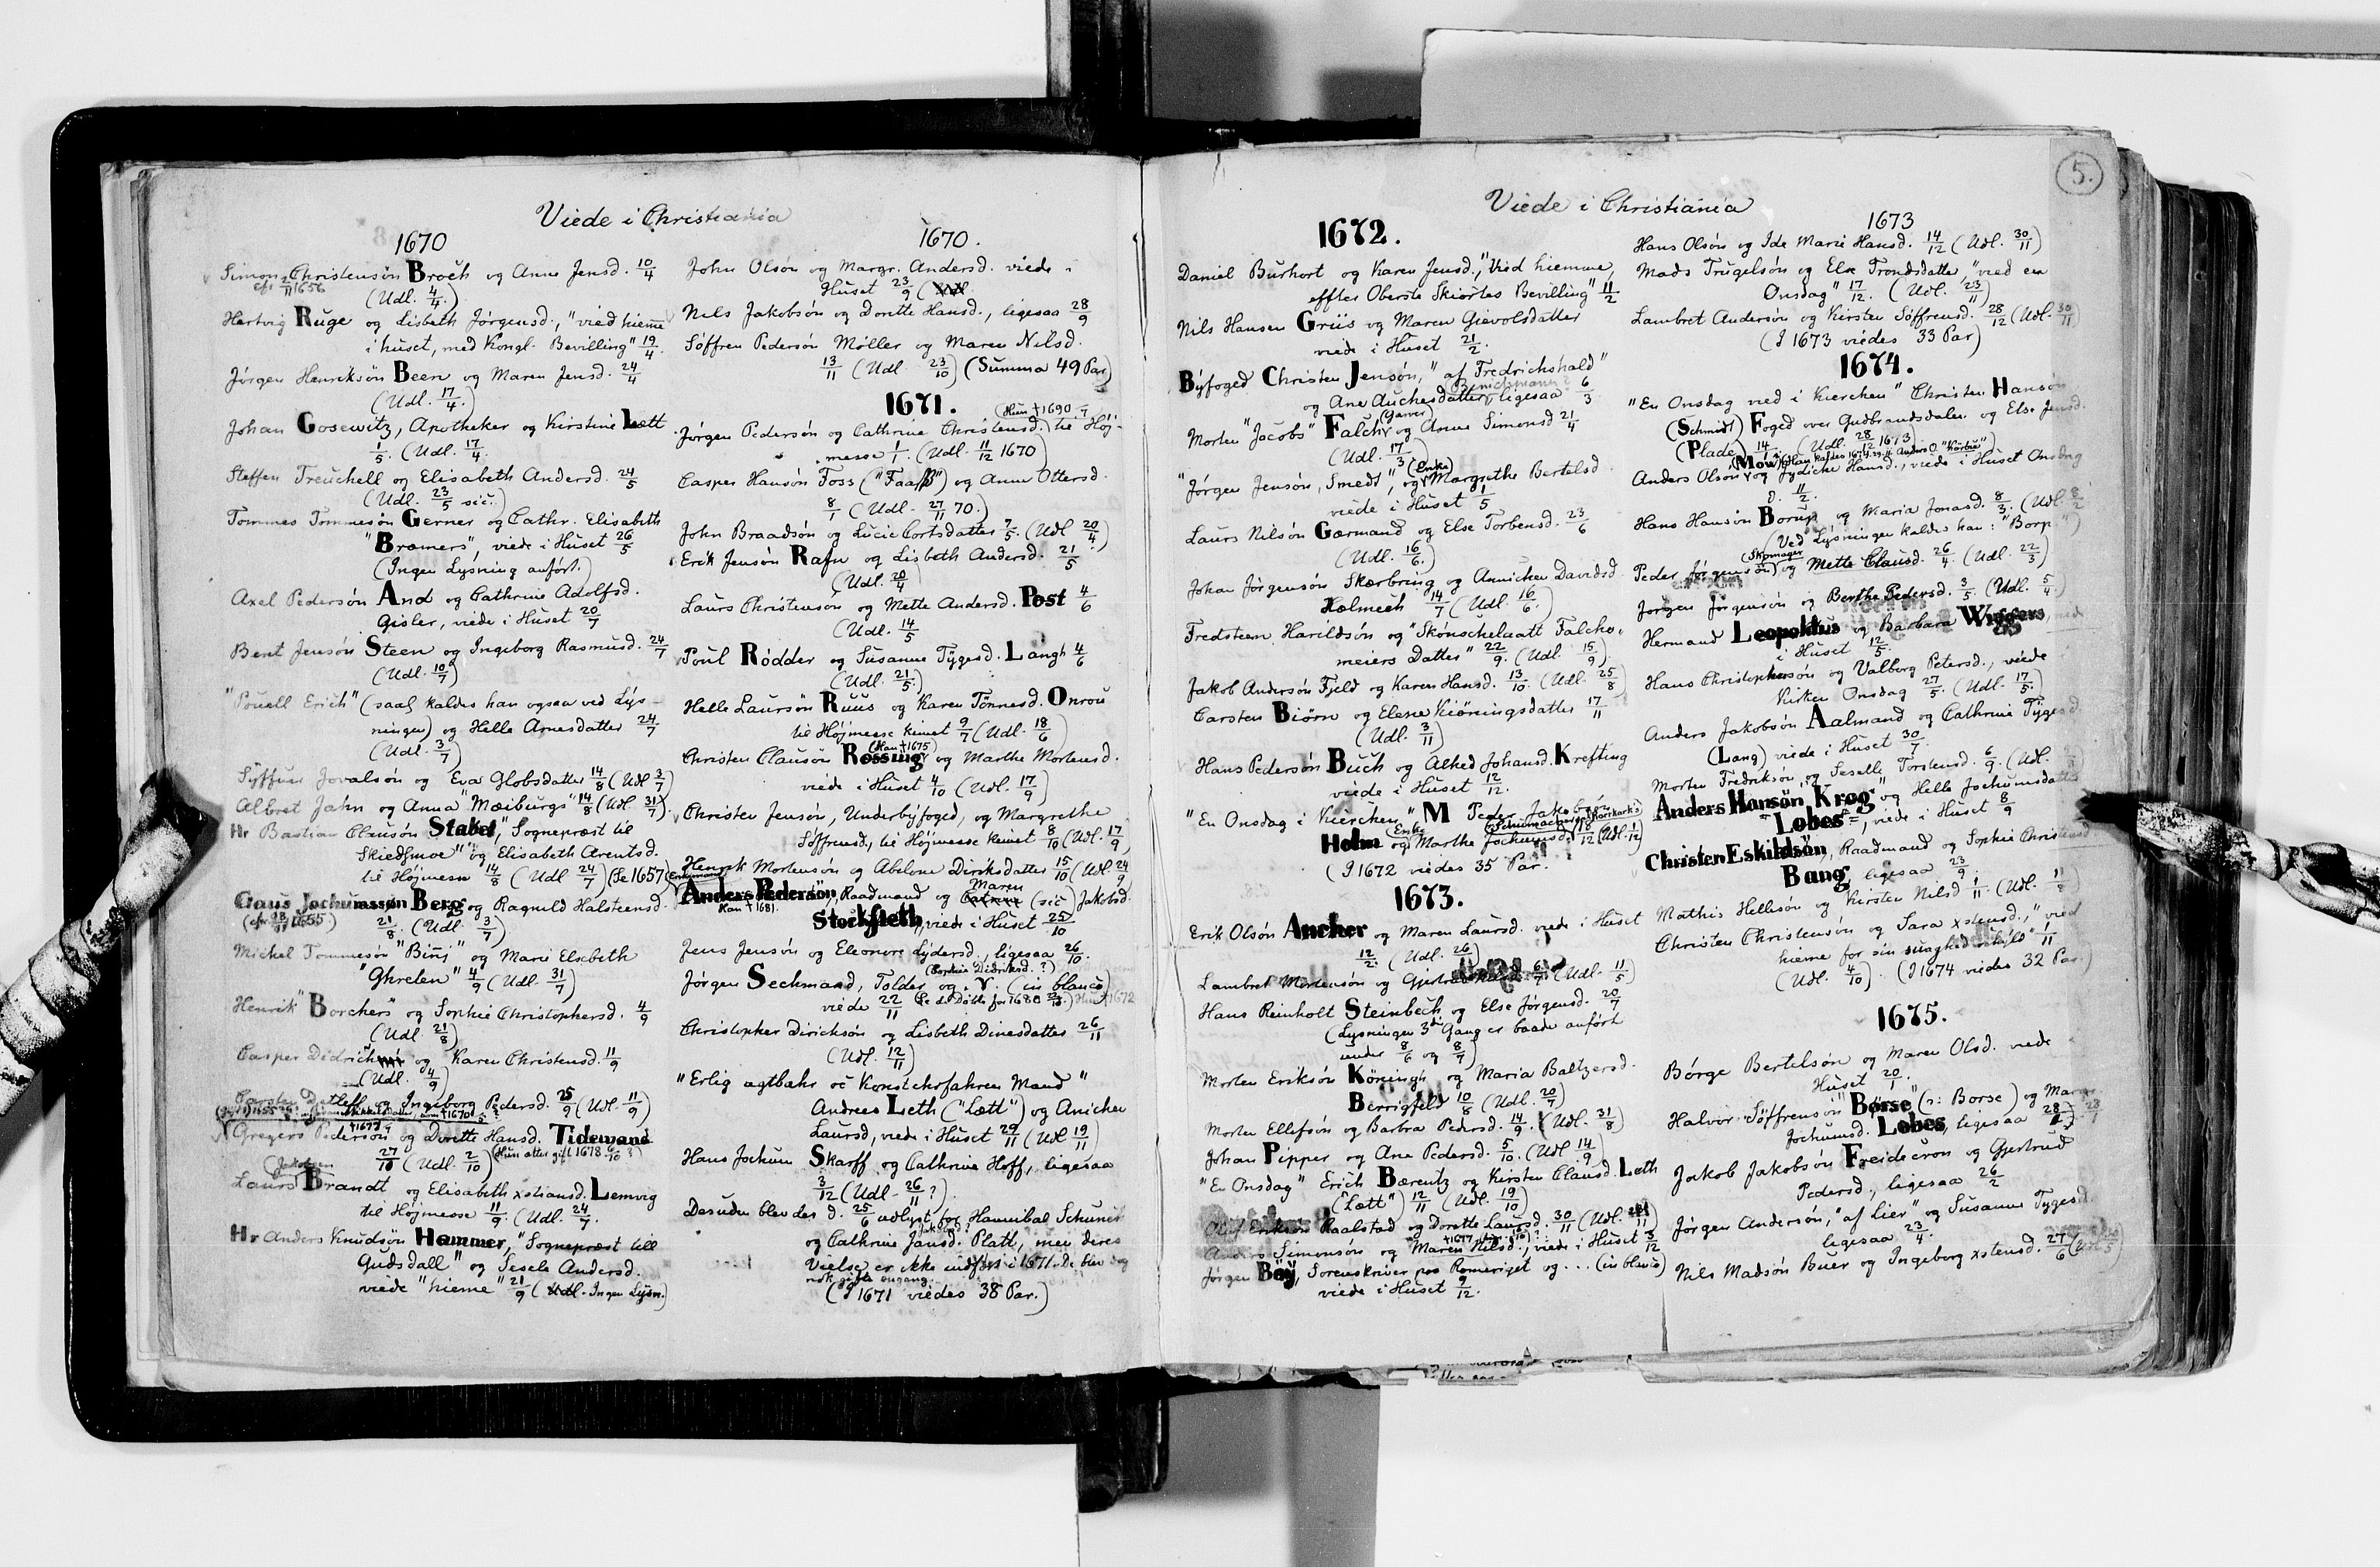 Viede i Christiania
1670
Simon Christensøn Broch og Anne Jensd. 10/4
cfr 2/11 1656 (Udl. 4/4.)
Hertvig Ruge og Lisbeth Jørgensd., "vied hieme
i huset, med Kongl. Bevilling" 19/4.
Jørgen Henriksøn Been og Maren Jensd. 24/4
(Udl. 17/4.)
Johan Gosewitz, Apotheker og Kirstine Lætt
1/5. (Udl. 17/4.
Steffen Treuchell og Elisabeth Andersd. 24/5
(Udl. 23/5 sic.)
Tommes Tommesøn Gerner og Cathr. Elisabeth
"Bramers", viede i Huset 26/5
(Ingen Lysning anført.)
Axel Pedersøn And og Cathrine Adolfsd.
Gisler, viede i Huset 20/7
Bent Jensøn Steen og Ingeborg Rasmusd. 24/7
(Udl. 10/7)
"Pouell Erich" (saal kaldes han ogsaa ved Lys-
ningen) og Helle Arnesdatter 24/7
(Udl. 3/7)
Syffuer Jovalsøn og Eva Globsdatter 14/8 (Udl 3/7)
Albret Jahn og Anna "Mæiburgs" 14/8 (Udl. 31/7)
Hr Bastian Clausøn Stabel, "Sognepræst til
Skiedsmoe" og Elisabeth Arentsd.
til Højmesse 14/8 (Udl 24/7) (Se 1657)
Claus Jochumssøn Berg og Ragnild Halsteensd.
21/8. (Udl. 3/7)
Mickel Tommesøn "Binj" og Marie Elsebeth
"Ghrelen" 4/9 (Udl. 31/7)
Henrik "Borchers" og Sophie Christophersd. 4/9
(Udl. 21/8)
Casper Didrich og Karen Christensd. 11/9
(Udl. 4/9)
Carsten Detleff og Ingeborg Pedersd. 25/9 (Udl. 11/9)
Gregers Pedersøn og Dorette Hansd. Tidemand
27/10 (Udl. 2/10) (Hun atter gift 1678 6/10 ?)
Laurs Brandt og Elisabeth xstiansd. Lemvig
til Højmesse 11/9. (Udl. 24/7.
Hr Anders Knudsøn Hammer, "Sognepræst till
Gudsdall" og Sesele Andersd.
viede "hieme" 21/9 (Udl. Ingen Lysn.)
1670.
John Olsøn og Margr. Andersd. viede i
Huset 23/9 (Udl.
Nils Jakobsøn og Dorette Hansd., ligesaa 28/9
Søffren Pedersøn Møller og Maren Nilsd.
13/11 (Udl 23/10) (Summa 49 Par)
1671.
(Hun † 1690 7/7)
Jørgen Pedersøn og Cathrine Christensd. til Høj-
messe 1/1. (Udl. 11/12 1670)
Casper Hansøn Foss ("Faasß") og Anne Ottersd.
8/1 (Udl. 27/11 70.)
John Braadsøn og Lucie Cortsdatter 7/5. (Udl 20/4.)
Erik Jensøn Rafn og Lisbeth Andersd. 21/5
(Udl. 20/4)
Laurs Christensøn og Mette Andersd. Post 4/6
(Udl. 14/5
Poul Rödder og Susanne Tygesd. Langh 4/6
(Udl. 21/5.)
Helle Laursøn Ruus og Karen Tönnesd. Onrou
til Højmesse kimet 9/7 (Udl. 18/6)
(Han † 1675)
Christen Clausøn Rossing og Marthe Mortensd.
viede i Huset 4/10 (Udl. 17/9)
Christen Jensøn, Underbyfoged, og Margrethe
Søffrensd., til Højmesse kimet 8/10 (Udl. 17/9)
Henrik Mortensøn og Abelone Diriksdatter 15/10 (Udl. 24/9
Anders Pedersøn, Raadmand og Maren (sic) Jakobsd.
Han † 1681.
Stockfleth, viede i Huset 25/10
Jens Jensøn og Eleonore Lydersd., ligesaa 26/10.
Jørgen Seckmand, Tolder og N. (in blanco)
viede 22/11
Christopher Dirichsøn og Lisbeth Dinesdatter 26/11
(Udl. 12/11)
"Erlig agtbahr oc Konstehrfahren Mand"
Andreas Leth ("Lætt") og Anichen
Laursd, viede i Huset 29/11 (Udl 19/11)
Hans Jochum Skarff og Cathrine Hoff, ligesaa
3/12 (Udl. 26/11 ?).
Desuden blev der d. 25/6 udlyst for Hannibal Schunit
og Cathrine Jansd. Platt, men deres
Vielse er ikke indført i 1671. De blev dog
nok gifte engang.
(I 1671 viedes 38 Par.)
5.
Viede i Christiania
1672.
Daniel Burhort og Karen Jensd., "Vied hiemme,
effter Oberste Skiørtes Bevilling" 11/2
Nils Hansen Griis og Maren Gievolsdatter
viede i Huset 21/2.
Byfoged Christen Jensøn, "af Fredrichshald"
og Ane Auchesdatter, ligesaa 6/3
Morten "Jacobs" Falch (Garver) og Anne Simonsd 21/4
(Udl. 17/3)
"Jørgen Jensøn, Smedt", og (Enke) Margrethe Bertelsd.
viede i Huset 1/5
Laurs Nilsøn Garmand og Else Torbensd. 23/6
(Udl. 16/6.)
Johan Jørgensøn Skærbring og Annichen Davidsd
Holmech 14/7 (Udl. 16/6.)
Fredsteen Harildsøn og "Skönschelaatt Falcke-
meiers Datter" 22/9. (Udl. 15/9)
Jakob Andersøn Fjeld og Karen Hansd. 13/10. (Udl. 25/8)
Carsten Biörn og Elene Kiöningsdatter 17/11
(Udl. 3/11)
Hans Pedersøn Buch og Alhed Johansd. Krefting
viede i Huset 12/12.
"En Onsdag i Kierchen" M Peder Jakobsøn
Holm og Marthe Jochumsd. 18/12 (Udl. 1/12)
(I 1672 viedes 35 Par.
1673.
Erik Olsøn Ancher og Maren Laursd. viede i Huset
12/2. (Udl. 26/1)
Lambret Mortensøn og Gjertrud 6/7 (Udl. 11/5)
Hans Reinholt Steinbech og Else Jørgensd. 20/7
(Lysningen 3de Gang er baade anført
under 8/6 og 8/7)
Morten Eriksøn Köningh og Maria Baltzersd.
Berrigfeld 10/8 (Udl. 20/7)
Morten Ellefsøn og Barbra Pedersd. 14/9. (Udl. 31/8)
Johan Pipper og Ane Pedersd. 5/10. (Udl 14/9)
"En Onsdag" Erich Bærentz og Kirsten Clausd. Leth
("Lætt") 12/11 (Udl. 19/10)
Oluf Eriksøn Raalstad og Dorette Laursd. 30/11 (Udl.
Anders Simonsøn og Maren Nilsd., viede i Huset 3/12
Jørgen Böy, Sorenskriver paa Romeriget og ... (in blanco)
viede i Huset 9/12.
1673
Hans Olsøn og Ide Marie Hansd. 14/12 (Udl. 30/11)
Mads Trugelsøn og Else Trondsdatter, "vied en
Onsdag" 17/12. (Udl. 23/11)
Lambret Andersøn og Kirsten Söffrensd. 28/12 (Udl. 30/11)
(I 1673 viedes 33 Par)
1674.
"En Onsdag vied i Kierchen" Christen Hansøn
(Schmidt) Foged over Gudbrandsdalen og Else Jensd.
(Plade) 14/1. (Udl. 28/12 1673)
Anders Olsøn (Mow) og Jydiche Hansd., viede i Huset Onsdag
d. 11/2.
Hans Hansøn Borup og Maria Jonasd. 8/3. (Udl. 8/2)
(Ved Lysningen kaldes han: "Borp")
(Skomager
Peder Jørgensøn) og Mette Clausd. 26/4. (Udl. 22/3)
Jørgen Jørgensøn og Berthe Pedersd. 3/5. (Udl. 5/4.)
Hermand Leopoldus og Barbara Wiggers, viede
i Huset 12/5.
Hans Christophersøn og Valborg Petersd., viede
Kirken Onsdag 27/5. (Udl. 17/5.)
Anders Jakobsøn Aalmand og Cathrine Tygesd
(Lang) viede i Huset 30/7.
Morten Fredriksøn og Seselle Torstensd. 6/9. (Udl.
Anders Hansøn "Krog" og Helle Jochumsdatter
"Lobes", viede i Huset 8/9
Christen Eskildsøn, Raadmand og Sophie Christensd
Bang, ligesaa 23/9.
Mathis Hellesøn og Kirsten Nilsd 1/11. (Udl. 11/8)
Christen Christensøn og Sara xstensd., "vied
hieme for sin suaghed skyld" 1/11
(Udl. 4/10). (I 1674 viedes 32 Par.)
1675.
Börge Bertelsøn og Maren Olsd. viede
Huset 20/1.
Halvor Söffrensøn "Børse" (ɔ: Borse) og Margr.
Jochumsd. Lobes, ligesaa 28/1.
Jakob Jakobsøn Freidscron og Gjertrud
Pedersd., ligesaa 26/2
Jørgen Andersøn, "af Lier" og Susanne Tygesd.
ligesaa 23/4.
Nils Madsøn Buer og Ingeborg xstensd. 27/6 (Udl.